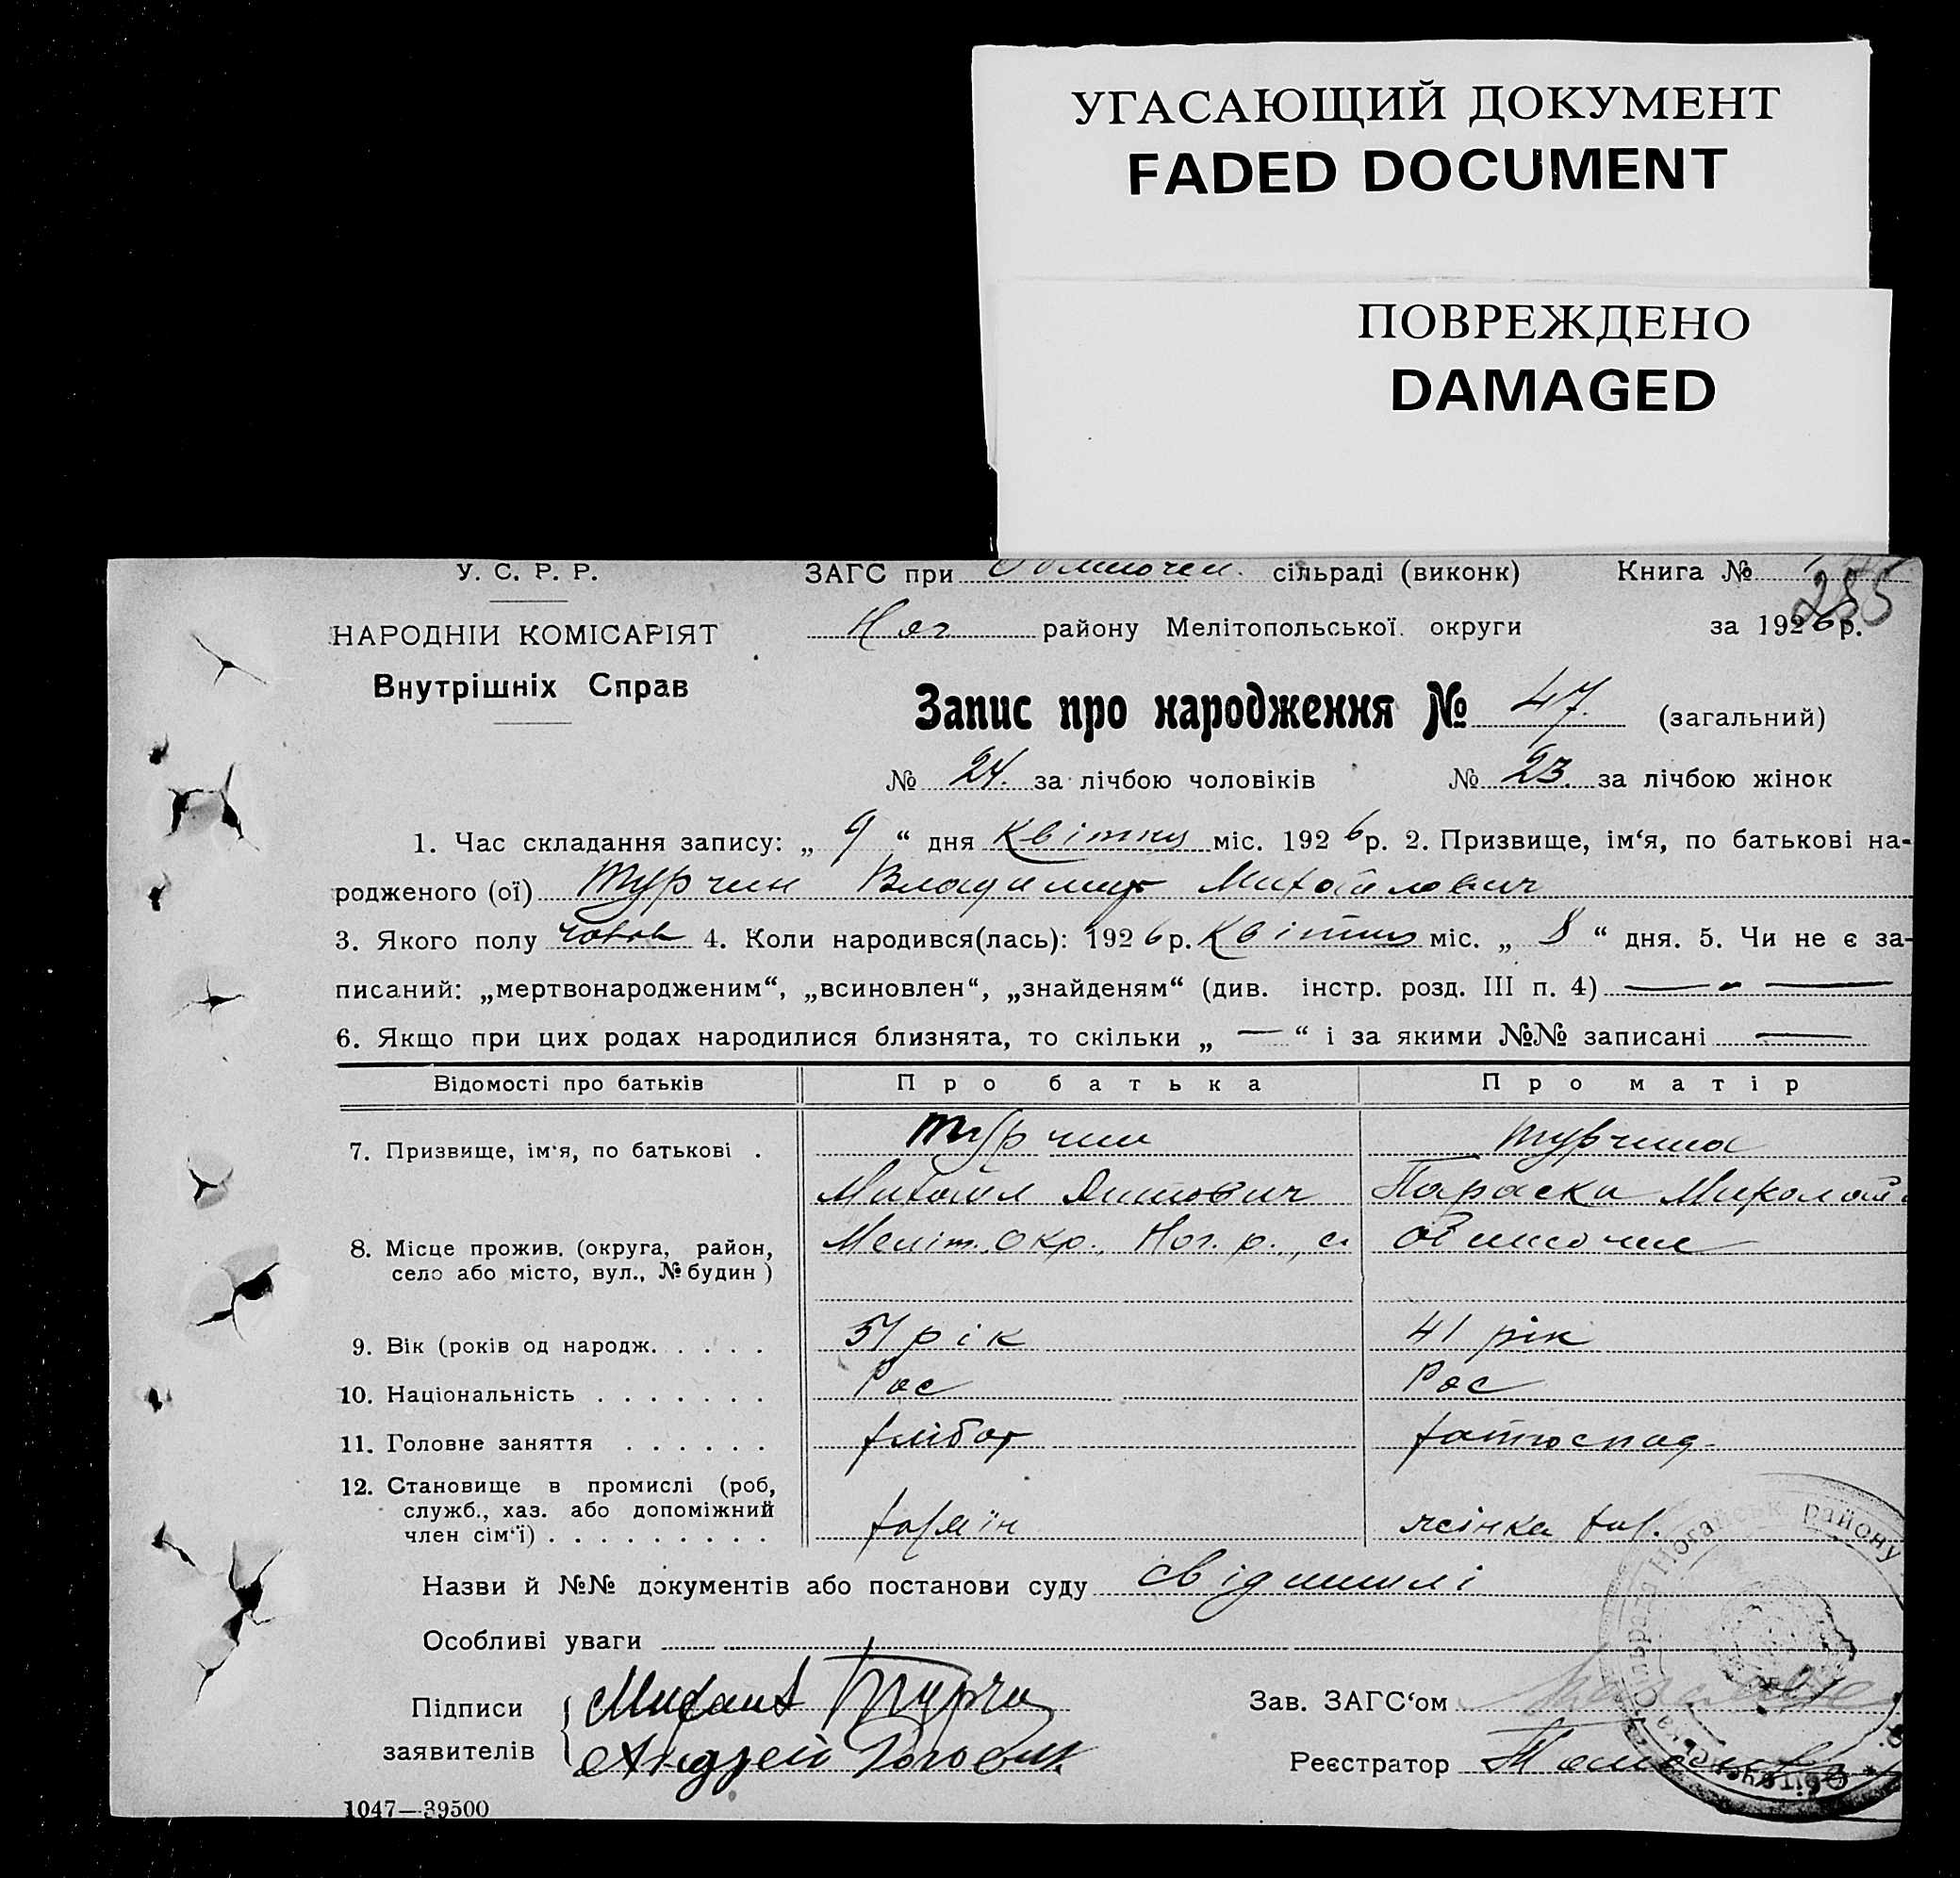 УГАСАЮЩИЙ ДОКУМЕНТ
FADED DOCUMENT
ПОВРЕЖДЕНО
DAMAGED
У. С. Р. Р.
ЗАГС при сільраді (виконк) Книга №
285
НАРОДНІЙ КОМІСАРІЯТ
Внутрішніх Справ
Ног району Мелітопольської округи за 1926 р.
Запис про народження № 47. (загальний)
№ 24. за лічбою чоловіків № 23. за лічбою жінок
1. Час складання запису: „ 9 “ дня Квітня міс. 1926 р. 2. Призвище, ім‘я, по батькові на-
родженого (ої) Турчин Владимир Михайлович
3. Якого полу 4. Коли народився(лась): 1926 р. Квітня міс. „ 8 “ дня. 5. Чи не є за-
писаний: „мертвонародженим“, „всиновлен“, „знайденям“ (див. інстр. розд. III п. 4) — - —
6. Якщо при цих родах народилися близнята, то скільки „ — “ і за якими №№ записані —
Відомості про батьків Про батька Про матір
7. Призвище, ім‘я, по батькові . Турчин Турчина
Михаил Параска Миколай
8. Місце прожив. (округа, район, Меліт. Окр., Ног. р., с.
село або місто, вул., № будин )
9. Вік (років од народж. . . . . рік 41 рік
10. Національність . . . . . . . Рос Рос
11. Головне заняття . . . . . . хлібор
12. Становище в промислі (роб,
служб., хаз. або допоміжний
член сім‘ї) . . . . . . . . . хазяїн жінка хаз.
Назви й №№ документів або постанови суду
Особливі уваги
Підписи Михаил Турчин Зав. ЗАГС‘ом
заявителів Андрей Реєстратор
1047—39500
Ногайськ району